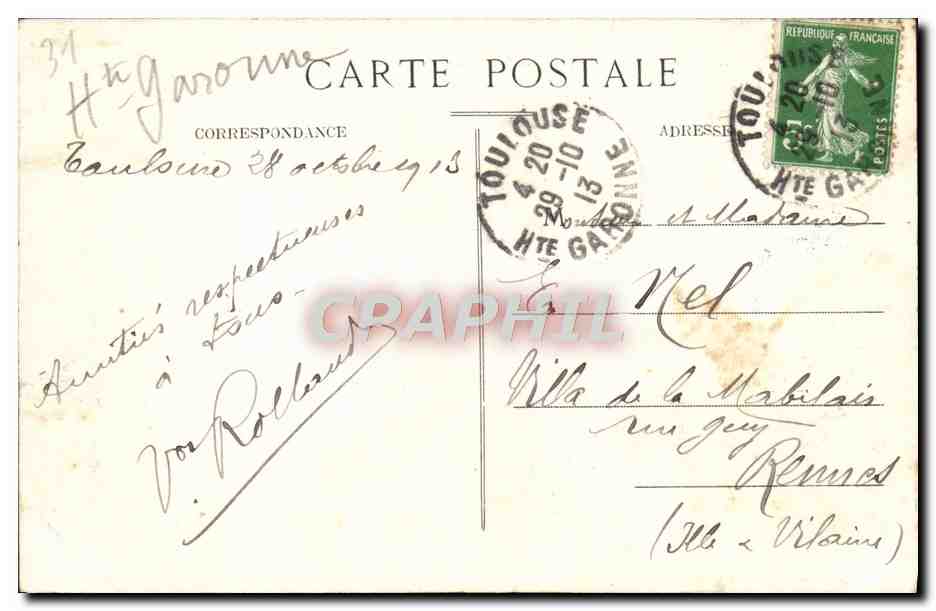 31
Hte Garonne
CARTE POSTALE
CORRESPONDANCE
ADRESSE
Toulouse 28 octobre 1913
Amitiés respectueuses
à tous -
Rolland
TOULOUSE
4 20
29 -10
13
HTE GARONNE
REPUBLIQUE FRANÇAISE
POSTES
TOULOUSE
4 20
29 -10
13
HTE GARONNE
Monsieur et Madame
E. Nel
Villa de la Mabilais
rue Guy
Rennes
(Ille & Vilaine)
CRAPHIL